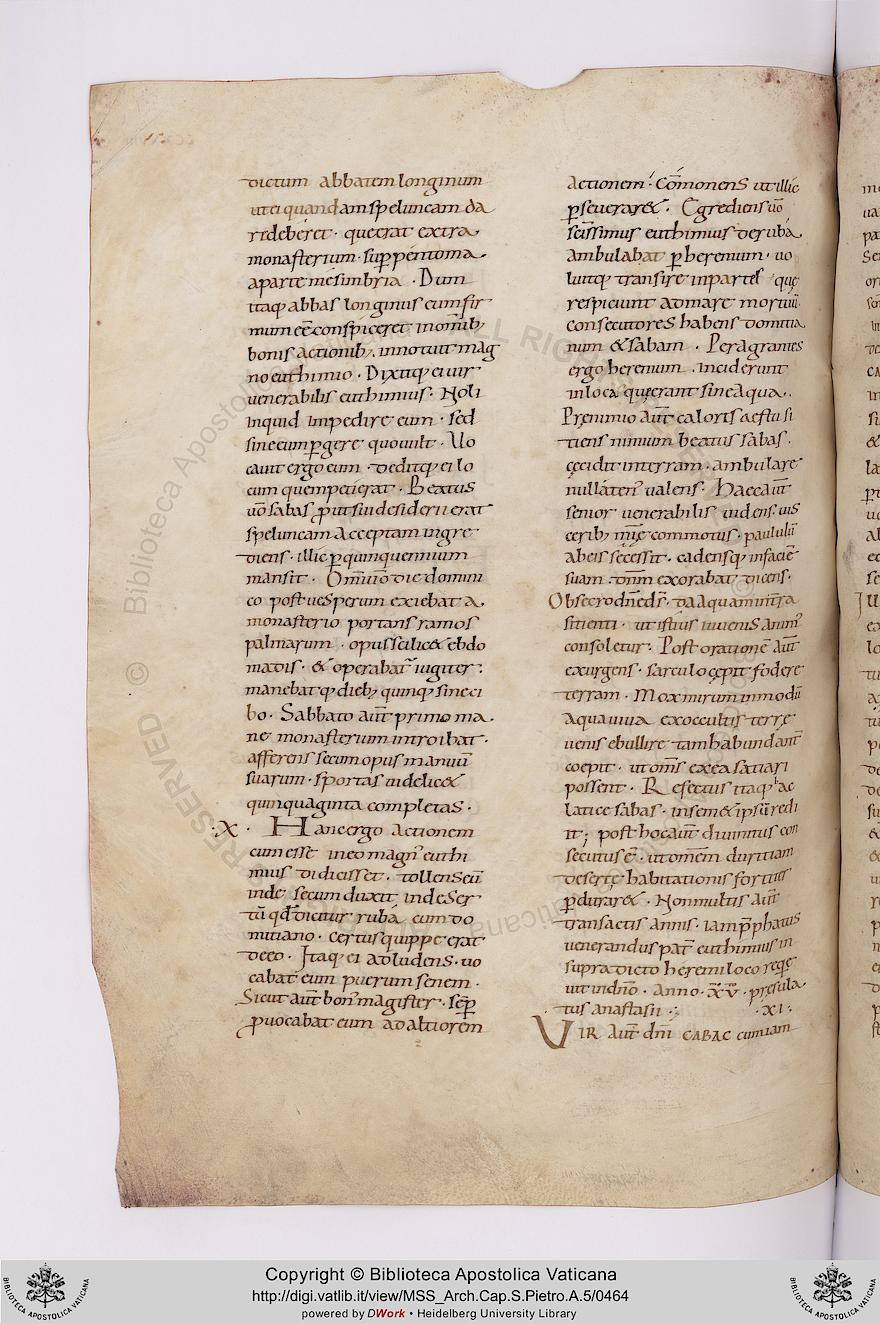 dictum abbatem longinum
ut ei quandam speluncam da
ri deberet · que erat extra
monasterium · sup̄ pentoma
a parte mesimbria · Dum
itaq; abbas longinus eum fir
mum eē conspiceret in om̄ib;
bonis actionib;, innotuit mag
no euthimio · Dixitq; ei uir
uenerabilis euthimius · Noli
inquid impedire eum · sed
sine eum ꝑgere quo uult · Uo
cauit ergo eum · deditq; ei lo
cum quem petierat · Beatus
uō sabas ꝓut sui desiderii erat
speluncam acceptam ingre
diens · illic ꝑ quinquennium
mansit · Omīuō die domini
co post uesperum exiebat a
monasterio portans ramos
palmarum · opus scilic& ebdo
madis · & operabat̄ iugiter ·
manebatq; dieb; quinq; sine ci
bo · Sabbato aūt primo ma
ne monasterium introibat ·
afferens secum opus manuū
suarum · sportas uidelic&
quinquaginta completas ·
·X · Hanc ergo actionem
eum esse in eo magn' euthi
mius didicisset · tollens eū
inde secum duxit in deser
tū qđ dicitur rubá cum do
mitiano · certus quippe erat
de eo · Itaq; ei adludens · uo
cabat eum puerum senem ·
Sicut aūt bon' magister · sēp
ꝓuocabat eum ad altiorem
actionem · Cōmonens ut illic
ꝑseuerar& · Egrediens uō
sc̄issimus euthimius de ruba
ambulabat ꝑ heremum · uo
luitq; transire in partes quę
respiciunt ad mare mortuū
consecutores habens domitia
num & sabam · Peragrantes
ergo heremum · inciderunt
in loca quę erant sine aqua ·
Prę nimio aūt caloris aestu si
tiens nimium beatus sabas ·
cecidit in terram · ambulare
nullaten' ualens · Haec aūt
senior uenerabilis uidens · uis
cerib; mīe commotus · paululū
ab eis secessit · cadensq; in faciē
suam dn̄m exorabat dicens ·
Obsecro dn̄e ds̄ · da aquam in tr̄a
sitienti · ut istius iuuenis anim'
consoletur · Post orationē aūt
exurgens · sarculo cępit fodere
terram · Mox mirum in modū
aqua uiua ex occultis terrę
uenis ebullire tam habundant̄
coepit · ut om̄s ex ea satiari
possent · Refectus itaq; hac
latice sabas · insem& ipsū redi
it; post hoc aūt diuinitus con
secutus ē · ut om̄em duritiam
desertę habitationis fortius
ꝑdurar& · Non multis aūt
transactis annis · iam p̄phatus
uenerandus pat̄ euthimius in
supradicto heremi loco reqe
uit in dn̄o · Anno · XV · presula
tus anastasii · XI ·
VIR aūt dn̄i SABAS cum iam
Copyright © Biblioteca Apostolica Vaticana
http://digi.vatlib.it/view/MSS_Arch.Cap.S.Pietro.A.5/0464
powered by DWork • Heidelberg University Library